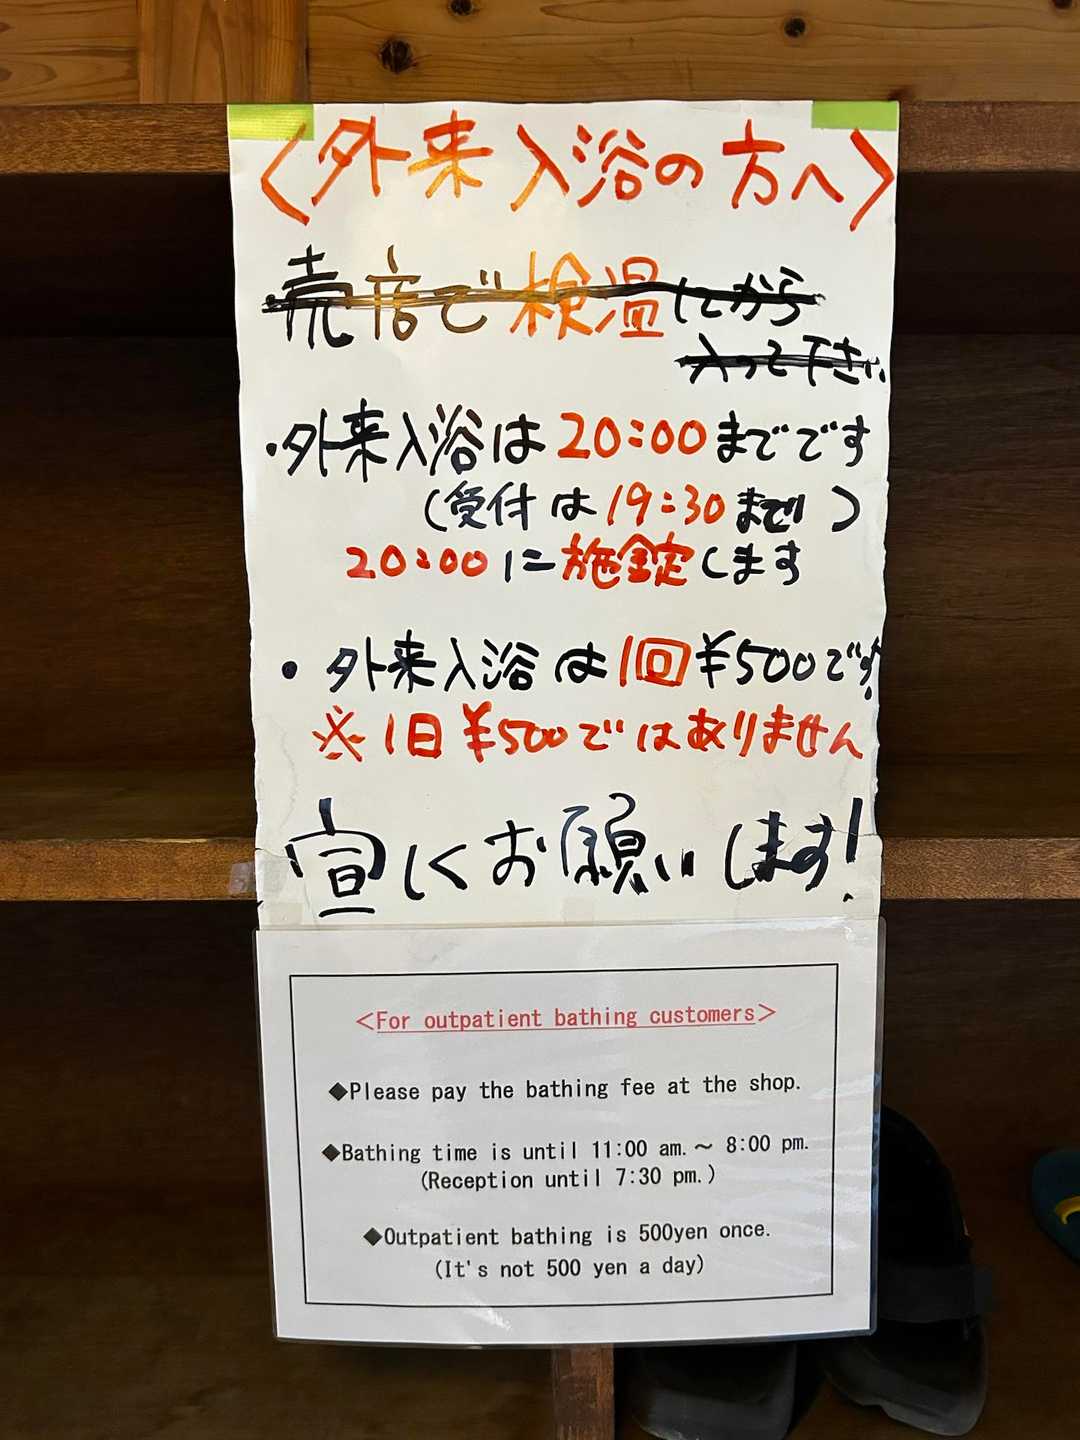 〈外来入浴の方へ〉
売店で検温してから
入って下さい
・外来入浴は20:00までです
(受付は19:30まで)
20:00に施錠します
・外来入浴は1回¥500です!
※1日¥500ではありません
宣しくお願いします!
<For outpatient bathing customers>
◆Please pay the bathing fee at the shop.
◆Bathing time is until 11:00 am.～ 8:00 pm.
(Reception until 7:30 pm.)
◆Outpatient bathing is 500yen once.
(It's not 500 yen a day)